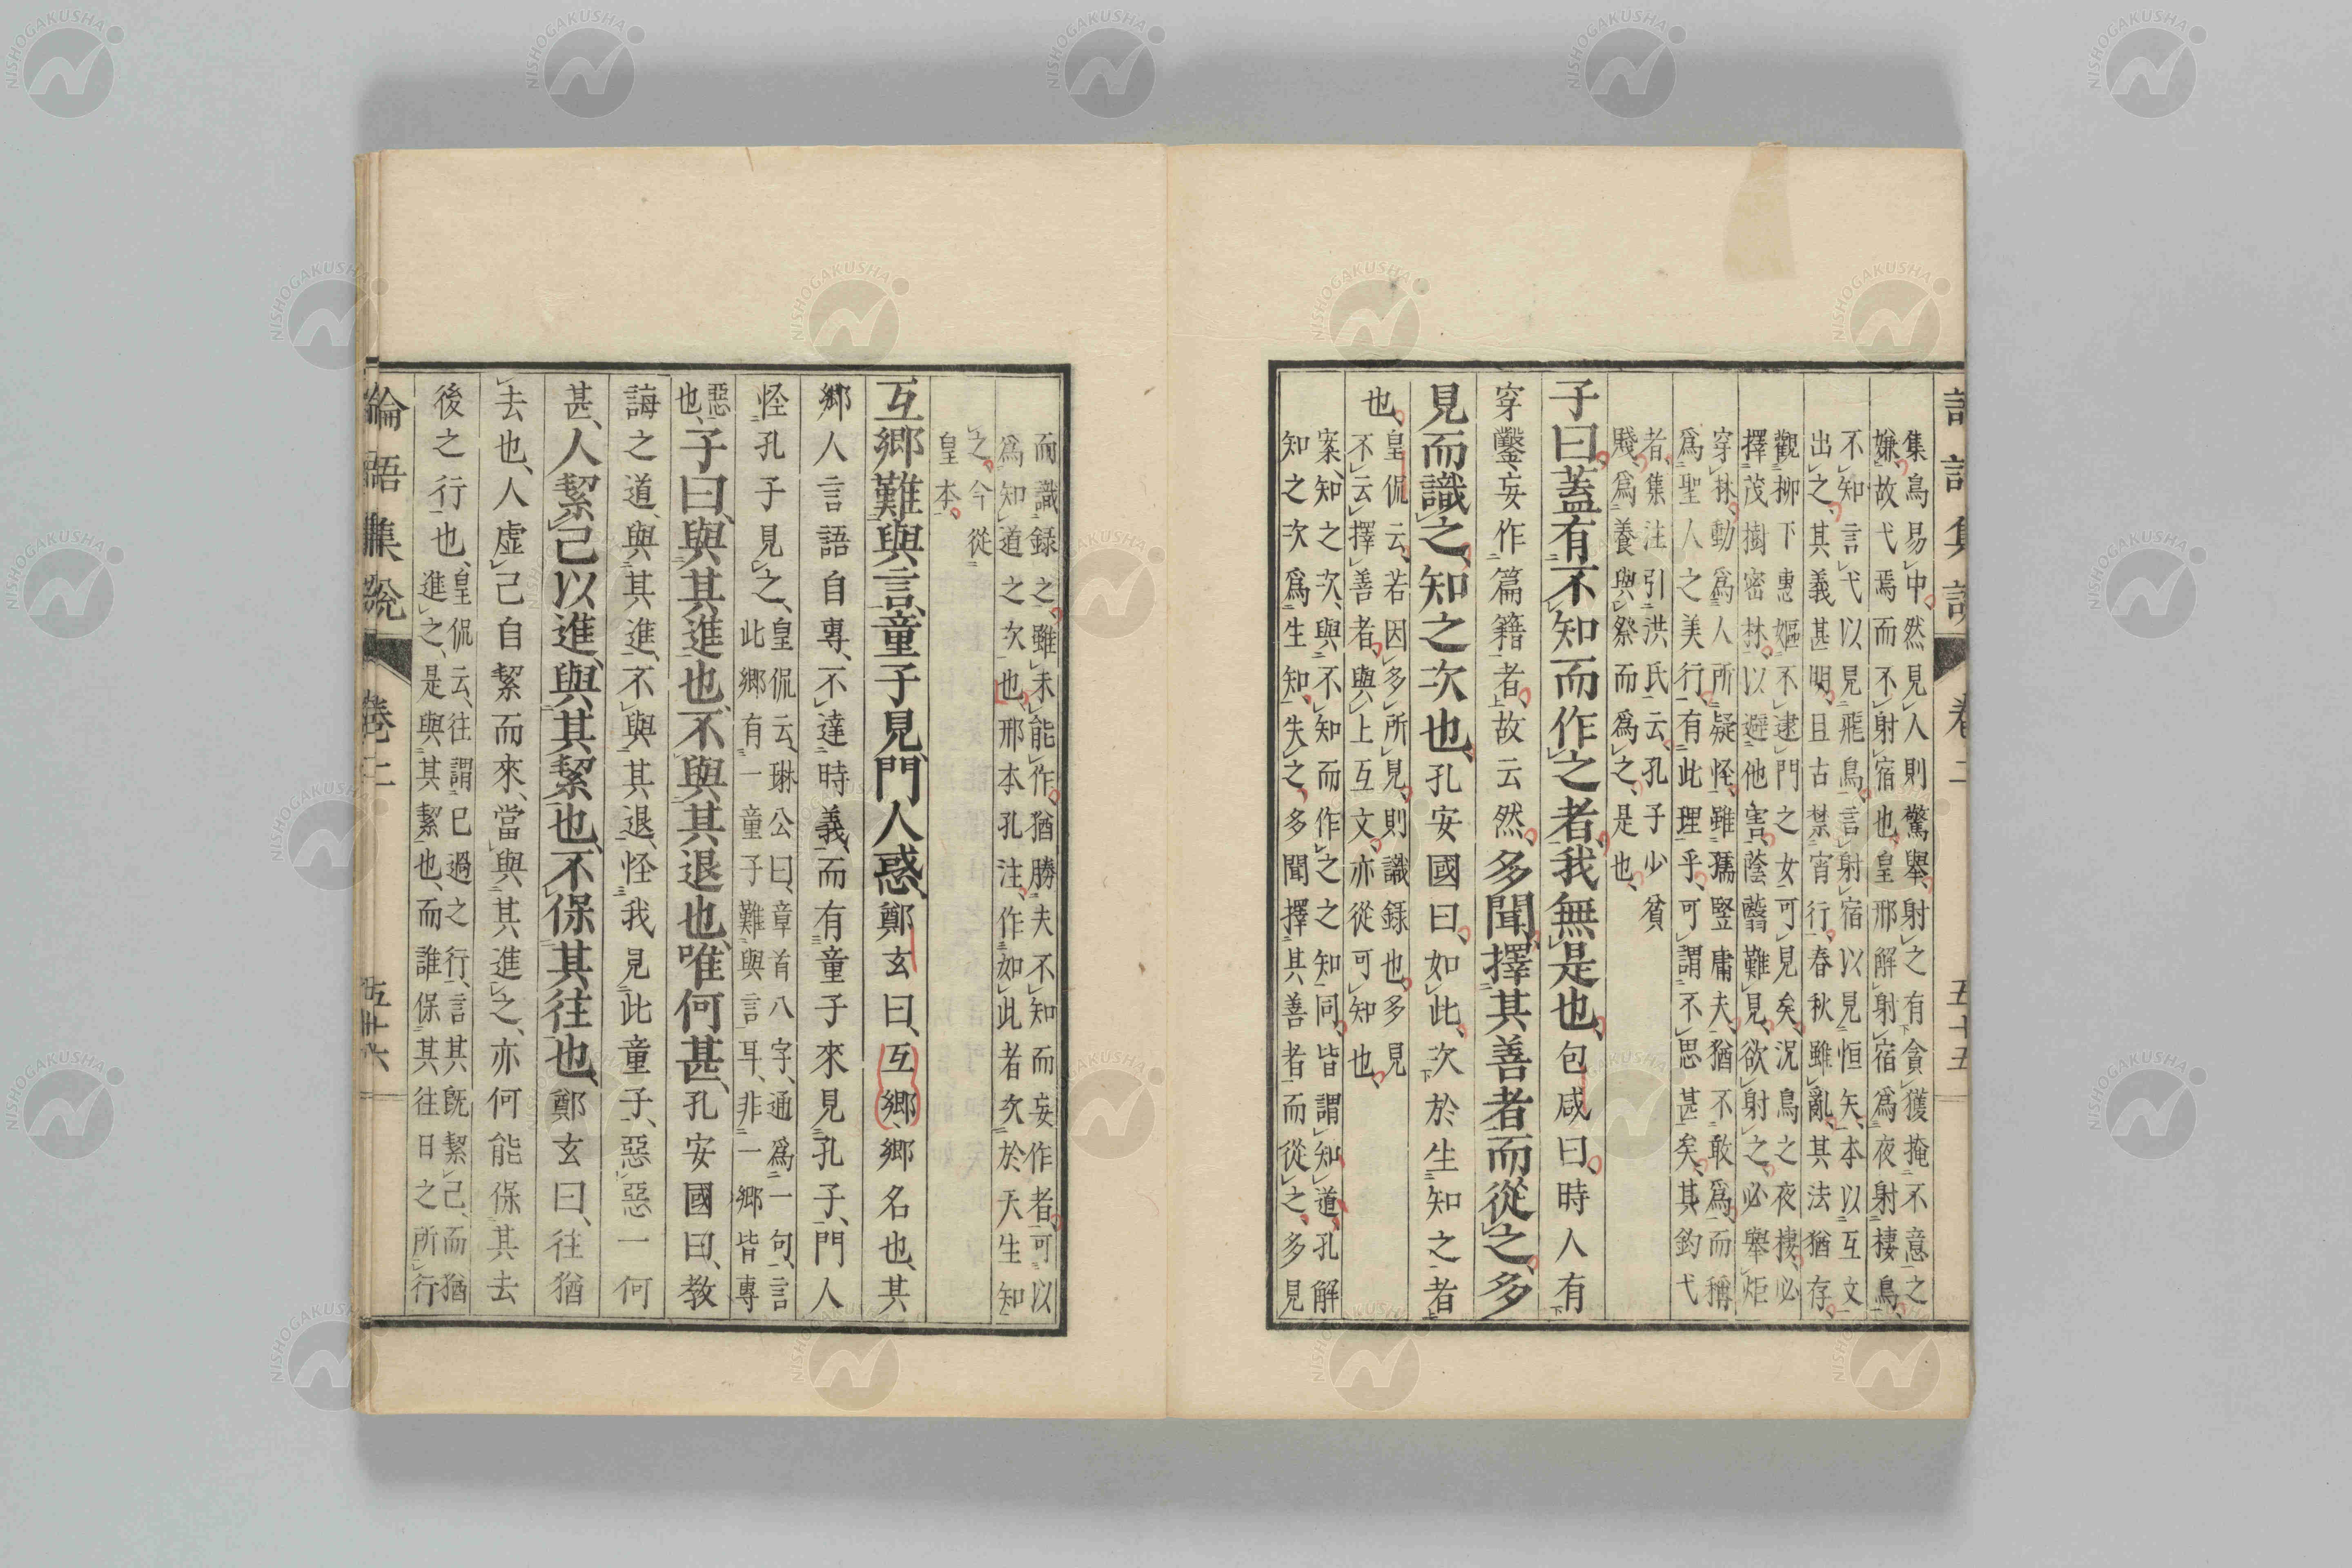 論語集說 卷二 五十五
集鳥易中、然見人則驚舉、射之有貪獲掩不意之
嫌、故弋焉而不射宿也、皇邢解射宿爲夜射棲鳥、
不知言弋以見飛鳥、言射宿以見恒矢、本以互文
出之、其義甚明、且古禁宵行、春秋雖亂、其法猶存、
觀柳下惠嫗不逮門之女可見矣、況鳥之夜棲、必
擇茂樹密林、以避他害、蔭翳難見、欲射之、必舉炬
穿林、動爲人所疑怪、雖獳豎庸夫、猶不敢爲、而稱
爲聖人之美行、有此理乎、可謂不思甚矣、其釣弋
者、集注引洪氏云、孔子少貧
賤、爲養與祭而爲之、是也、
子曰、蓋有不知而作之者、我無是也、包咸曰、時人有
穿鑿妄作篇籍者、故云然、多聞擇其善者而從之、多
見而識之、知之次也、孔安國曰、如此、次於生知之者
也、
皇侃云、若因多所見、則識録也、多見
不云擇善者、與上互文、亦從可知也、
案、知之次、與不知而作之之知同、皆謂知道、孔解
知之次爲生知、失之、多聞擇其善者而從之、多見
而識録之、雖未能作、猶勝夫不知而妄作者、可以
爲知道之次也、邢本孔注、作如此者次於天生知
之、今從
皇本、
互鄉難與言、童子見、門人惑、鄭玄曰、互鄉、鄉名也、其
鄉人言語自專、不達時義、而有童子來見孔子、門人
怪孔子見之、
皇侃云、琳公曰、章首八字、通爲一句、言
此鄉有一童子難與言耳、非一鄉皆專
惡
也、
子曰、與其進也、不與其退也、唯何甚、孔安國曰、教
誨之道、與其進、不與其退、怪我見此童子、惡惡一何
甚、人絜己以進、與其絜也、不保其往也、鄭玄曰、往猶
去也、人虛己自絜而來、當與其進之、亦何能保其去
後之行也、
皇侃云、往謂已過之行、言其既絜己、而猶
進之、是與其絜也、而誰保其往日之所行
論語集說 卷二 五十六